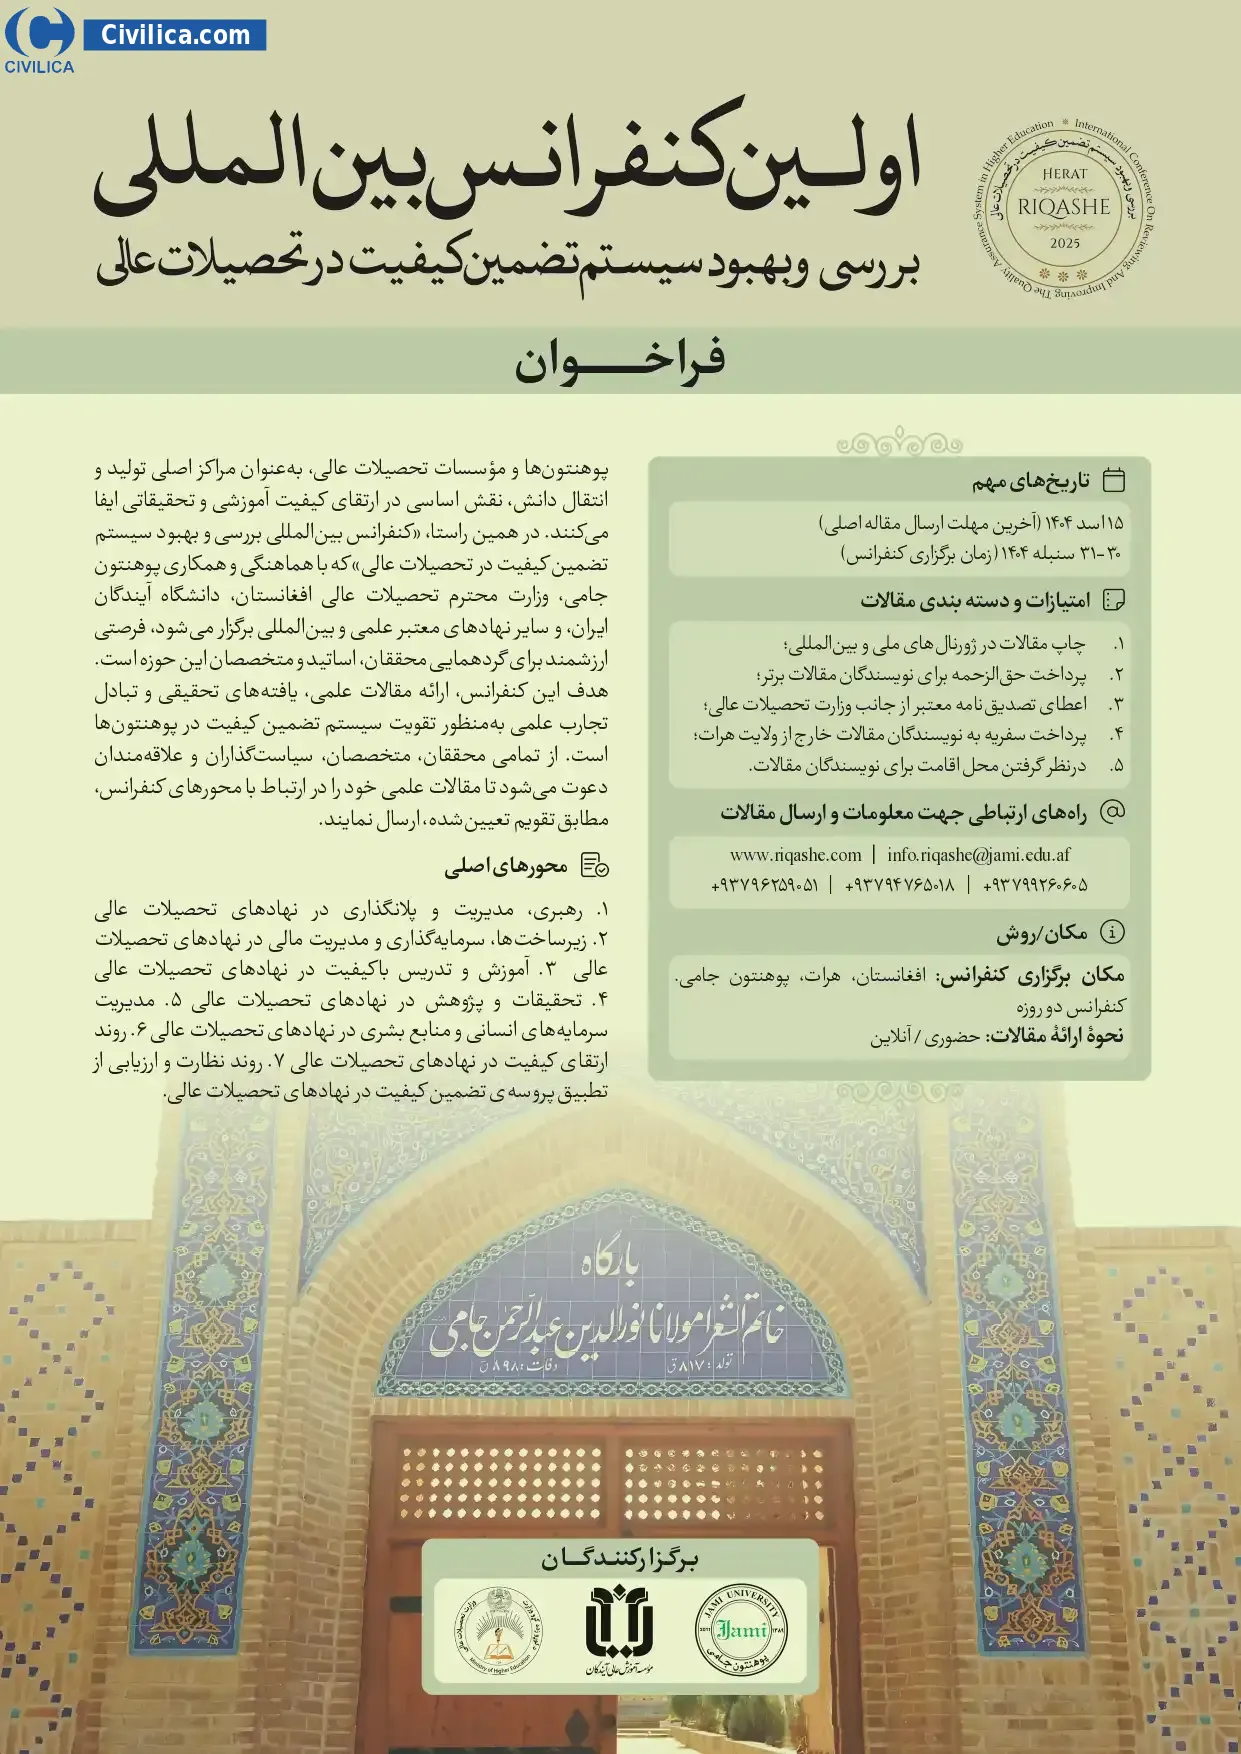 CIVILICA
Civilica.com
اولین کنفرانس بین‌المللی
بررسی و بهبود سیستم تضمین کیفیت در تحصیلات عالی
International Conference On Reviewing And Improving The Quality Assurance System in Higher Education
بررسی و بهبود سیستم تضمین کیفیت در تحصیلات عالی
HERAT
RIQASHE
2025
فراخوان
تاریخ‌های مهم
۱۵ اسد ۱۴۰۴ (آخرین مهلت ارسال مقاله اصلی)
۳۰-۳۱ سنبله ۱۴۰۴ (زمان برگزاری کنفرانس)
امتیازات و دسته بندی مقالات
۱. چاپ مقالات در ژورنال‌های ملی و بین‌المللی؛
۲. پرداخت حق‌الزحمه برای نویسندگان مقالات برتر؛
۳. اعطای تصدیق نامه معتبر از جانب وزارت تحصیلات عالی؛
۴. پرداخت سفریه به نویسندگان مقالات خارج از ولایت هرات؛
۵. درنظر گرفتن محل اقامت برای نویسندگان مقالات.
راه‌های ارتباطی جهت معلومات و ارسال مقالات
www.riqashe.com | info.riqashe@jami.edu.af
+۹۳۷۹۶۲۵۹۰۵۱ | +۹۳۷۹۴۷۶۵۰۱۸ | +۹۳۷۹۹۲۶۰۶۰۵
مکان/روش
مکان برگزاری کنفرانس: افغانستان، هرات، پوهنتون جامی.
کنفرانس دو روزه
نحوهٔ ارائهٔ مقالات: حضوری / آنلاین
پوهنتون‌ها و مؤسسات تحصیلات عالی، به‌عنوان مراکز اصلی تولید و
انتقال دانش، نقش اساسی در ارتقای کیفیت آموزشی و تحقیقاتی ایفا
می‌کنند. در همین راستا، «کنفرانس بین‌المللی بررسی و بهبود سیستم
تضمین کیفیت در تحصیلات عالی» که با هماهنگی و همکاری پوهنتون
جامی، وزارت محترم تحصیلات عالی افغانستان، دانشگاه آیندگان
ایران، و سایر نهادهای معتبر علمی و بین‌المللی برگزار می‌شود، فرصتی
ارزشمند برای گردهمایی محققان، اساتید و متخصصان این حوزه است.
هدف این کنفرانس، ارائه مقالات علمی، یافته‌های تحقیقی و تبادل
تجارب علمی به‌منظور تقویت سیستم تضمین کیفیت در پوهنتون‌ها
است. از تمامی محققان، متخصصان، سیاست‌گذاران و علاقه‌مندان
دعوت می‌شود تا مقالات علمی خود را در ارتباط با محورهای کنفرانس،
مطابق تقویم تعیین‌شده، ارسال نمایند.
محورهای اصلی
۱. رهبری، مدیریت و پلانگذاری در نهادهای تحصیلات عالی
۲. زیرساخت‌ها، سرمایه‌گذاری و مدیریت مالی در نهادهای تحصیلات
عالی ۳. آموزش و تدریس باکیفیت در نهادهای تحصیلات عالی
۴. تحقیقات و پژوهش در نهادهای تحصیلات عالی ۵. مدیریت
سرمایه‌های انسانی و منابع بشری در نهادهای تحصیلات عالی ۶. روند
ارتقای کیفیت در نهادهای تحصیلات عالی ۷. روند نظارت و ارزیابی از
تطبیق پروسه‌ی تضمین کیفیت در نهادهای تحصیلات عالی.
بارگاه
خاتم الشعرا مولانا نورالدین عبدالرحمن جامی
تولد: ۸۱۷ ق
وفات: ۸۹۸ ق
برگزارکنندگان
JAMI UNIVERSITY
Jami
پوهنتون جامی
مؤسسه آموزش عالی آیندگان
وزارت تحصیلات عالی
Ministry of Higher Education